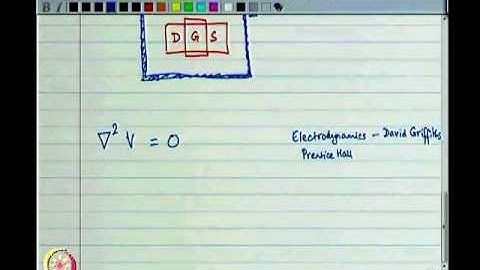 D G S
∇² V = 0
Electrodynamics – David Griffiths
Prentice Hall